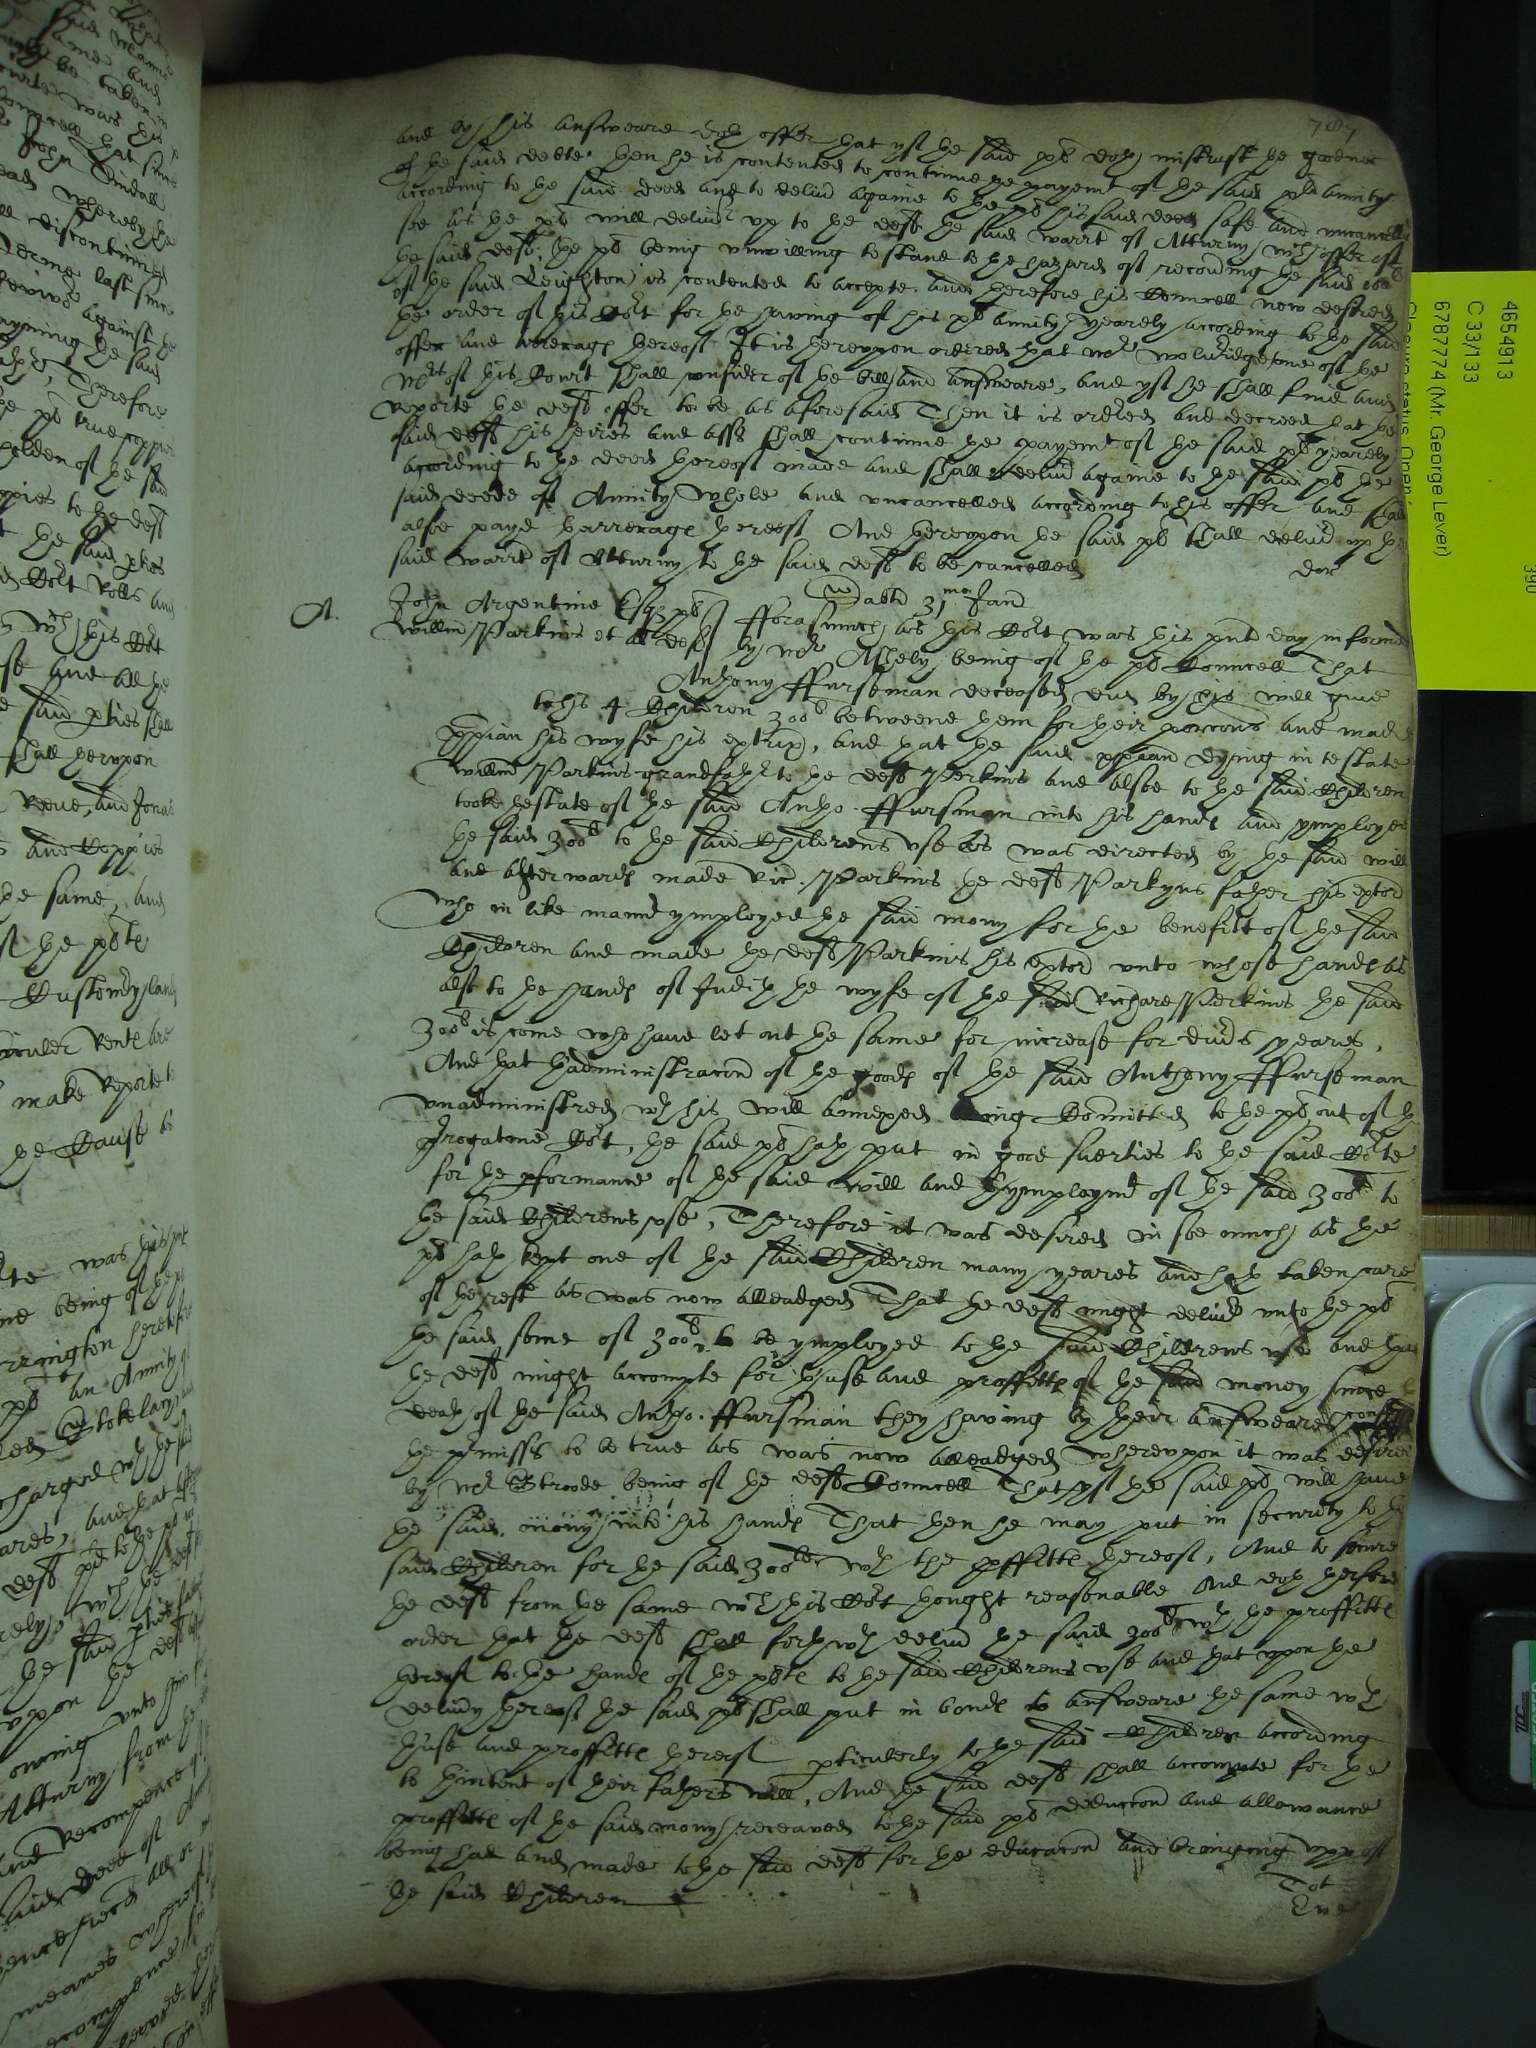 787
and by his answeare doth offer that yf the said pl doth mistrust the goodnes
of the said debte then he is contented to continue the payemt of the said pl annity
according to the said deed and to deliv againe to the pl his said deed safe and uncancelled
soe as the pl will deliv up to the deft the said warrt of Atturny wch offer of
the said deft the pl being unwilling to stand to the hazard of recoving the said
of the said Leighton is contented to accepte and therefore his Councell now desired
the order of this Cort for the having of his pl annity yearely according to the said
offer and arrerages thereof It is thereuppon ordered that mr wolveridge one of the
mrs of this Court shall consider of the bill and answeare, and yf he shall find and
reporte the defts offer to be as aforesaid Then it is ordred and decreed that the
said deft his heires and asss shall continue the payemt of the said pl yearely
according to the deed thereof made and shall deliv againe to the said pl the
said deede of Annity whole and uncancelled according to his offer and shall
alsoe paye tharrerages thereof And thereuppon the said pl shall deliv up the
said warrt of Atturny to the said deft to be cancelled
A.
John Argentine Esqr pl
Willm Parkins et al deftes
Sabti 31mo Jan
fforasmuch as this Cort was this pnte day informed
by mr Asheby being of the pl Councell That
Anthony ffurseman deceased did by his will give
to his 4 Children 300l betweene them for their porcons and made
his wyfe his extrix, and that the said dying intestate
Willm Parkins grandfather to the deft Perkins and alsoe to the said Children
tooke thestate of the said Antho. ffursman into his hands and ymployed
the said 300l to the said Childrens use as was directed by the said will
and afterwards made Ric. Parkins the deft Parkyns father his extor
who in like manner ymployed the said mony for the benefitt of the said
Children and made the deft Parkins his extor unto whose hands as
also to the hands of Judith the wyfe of the said Richard Perkins the said
300l is come who have let out the same for increase for divs yeares,
And that thadministracon of the goods of the said Anthony ffurseman
unadministred wth his will annexed being Committed to the pl out of the
progative Cort, the said pl hath put in good suerties to the said Corte
for the pformance of the said will and thymploymt of the said 300l to
the said Childrens use, Therefore it was desired in soe much as the
pl hath kept one of the said Children many yeares and hath taken care
of the rest as was now alleadged That the deft might deliv unto the pl
the said some of 300l to be ymployed to the said Childrens use and that
the deft might accompte for thuse and proffitts of the said money since the
death of the said Antho. ffursman they having by their answeares confessed
the pmisses to be true as was now alleadged whereuppon it was desired
by mr Stroode being of the defts Councell That yf the said pl will have
the said mony into his hands That then he may put in security to the
said Children for the said 300l wth the pffitts thereof, And to secure
the deft from the same wch this Cort thought reasonable And doth therfore
order that the deft shall forthwth deliv the said 300l wth the proffitts
thereof to the hands of the pl to the said Childrens use and that upon the
delivy thereof the said pl shall put in bonds to answeare the same wth
thuse and proffitts thereof pticulerly to the said Children according
to thintent of their fathers will, And the said deft shall accompte for the
proffitts of the said mony receaved to the said pl deduccon and allowance
being had and made to the said deft for the educacon and bringing upp of
the said Children
4654913
C 33/133
67877774 (Mr. George Lever)
390